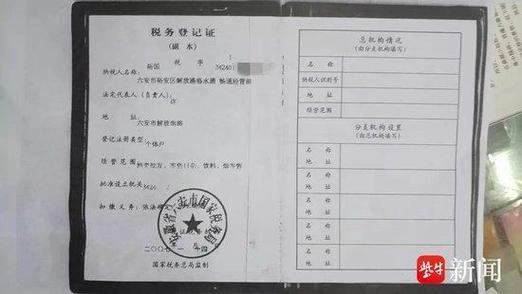 税务登记证
(副本)
裕国 税字 34240
纳税人名称:
六安市裕安区解放路临水酒 畅通经营部
法定代表人(负责人):
许
地 址:
六安市解放路
登记注册类型:
个体户
经营范围:
批准设立机关:
3424
扣缴义务:依法
安徽省六安市国家税务局
二〇〇
国家税务总局监制
总机构情况
(由分支机构填写)
名 称
纳税人识别号
地 址
经营范围
分支机构设置
(由总机构填写)
名 称
地址
名 称
地址
名 称
地址
名 称
地址
名 称
地址
紫牛新闻